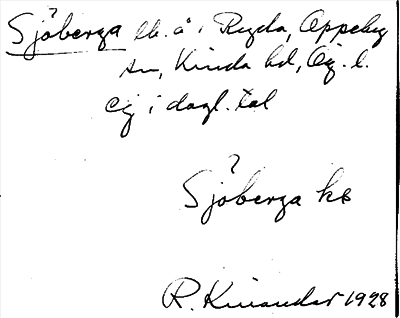 Sjöberga lb. å i Ryda, Oppeby
sn, Kinda hd, Ög. l.
Ej i dagl. tal
?
Sjöberga kb
R. Kinander 1928